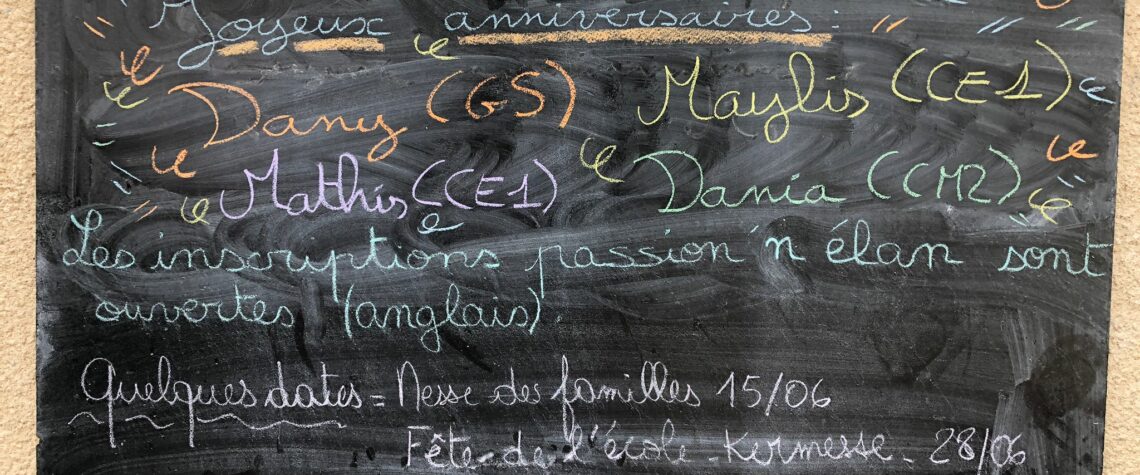 Joyeux anniversaires :
Dany (GS) Maylis (CE1)
Mathis (CE1) Dania (CM2)
Les inscriptions passion'n élan sont
ouvertes (anglais).
Quelques dates = Messe des familles 15/06
Fête de l'école - Kermesse - 28/06